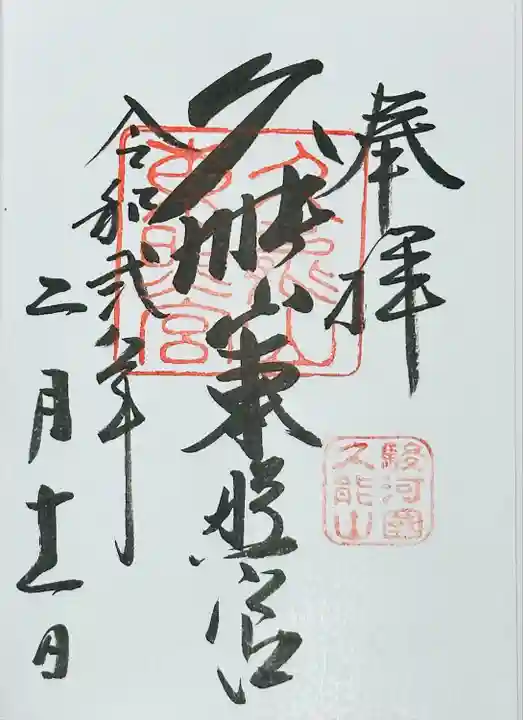 奉拝
久能山東照宮
令和弐年
二月十一日
久能山
東照宮
駿河国
久能山